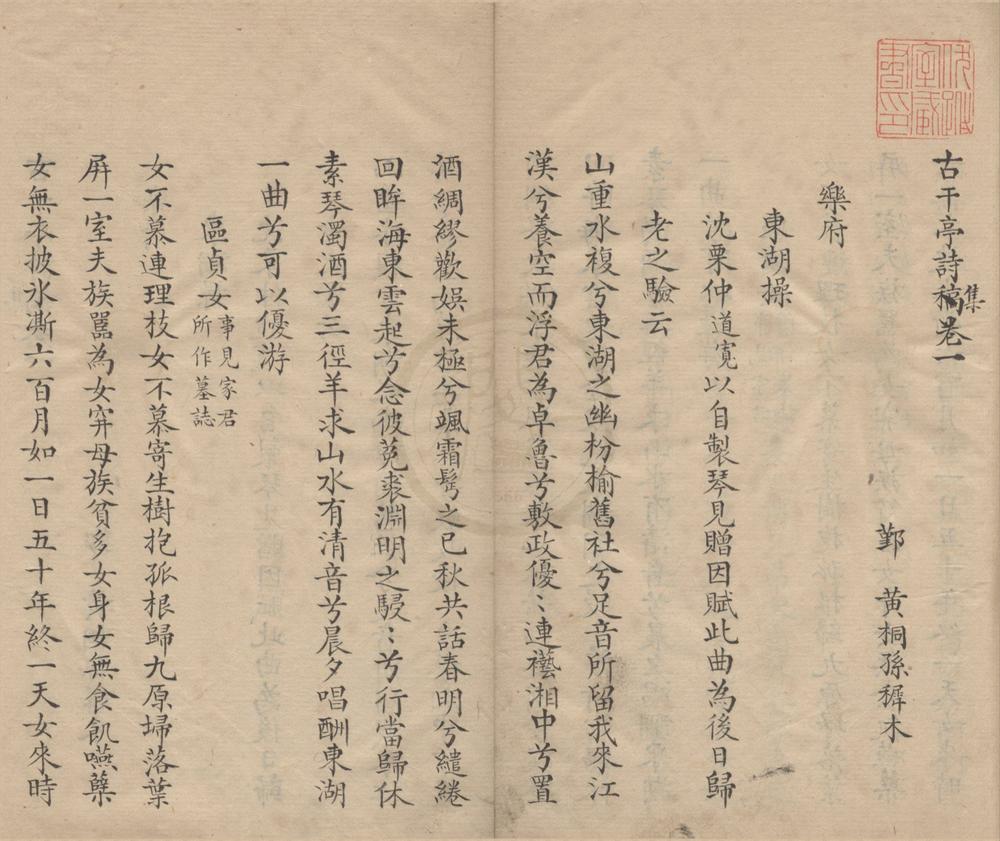 古干亭詩稿集卷一
鄞 黃桐孫稺木
樂府
東湖操
沈栗仲道寬以自製琴見贈因賦此曲為後日歸
老之驗云
山重水複兮東湖之幽枌榆舊社兮足音所留我來江
漢兮養空而浮君為卓魯兮敷政優〻連襼湘中兮置
酒綢繆歡娛未極兮颯霜髩之已秋共話春明兮繾綣
回眸海東雲起兮念彼菟裘淵明之駸〻兮行當歸休
素琴濁酒兮三徑羊求山水有清音兮晨夕唱酬東湖
一曲兮可以優游
區貞女事見家君所作墓誌
女不慕連理枝女不慕寄生樹抱孤根歸九原埽落葉
屏一室夫族囂為女穽母族貧多女身女無食飢嚥蘗
女無衣披氷澌六百月如一日五十年終一天女來時